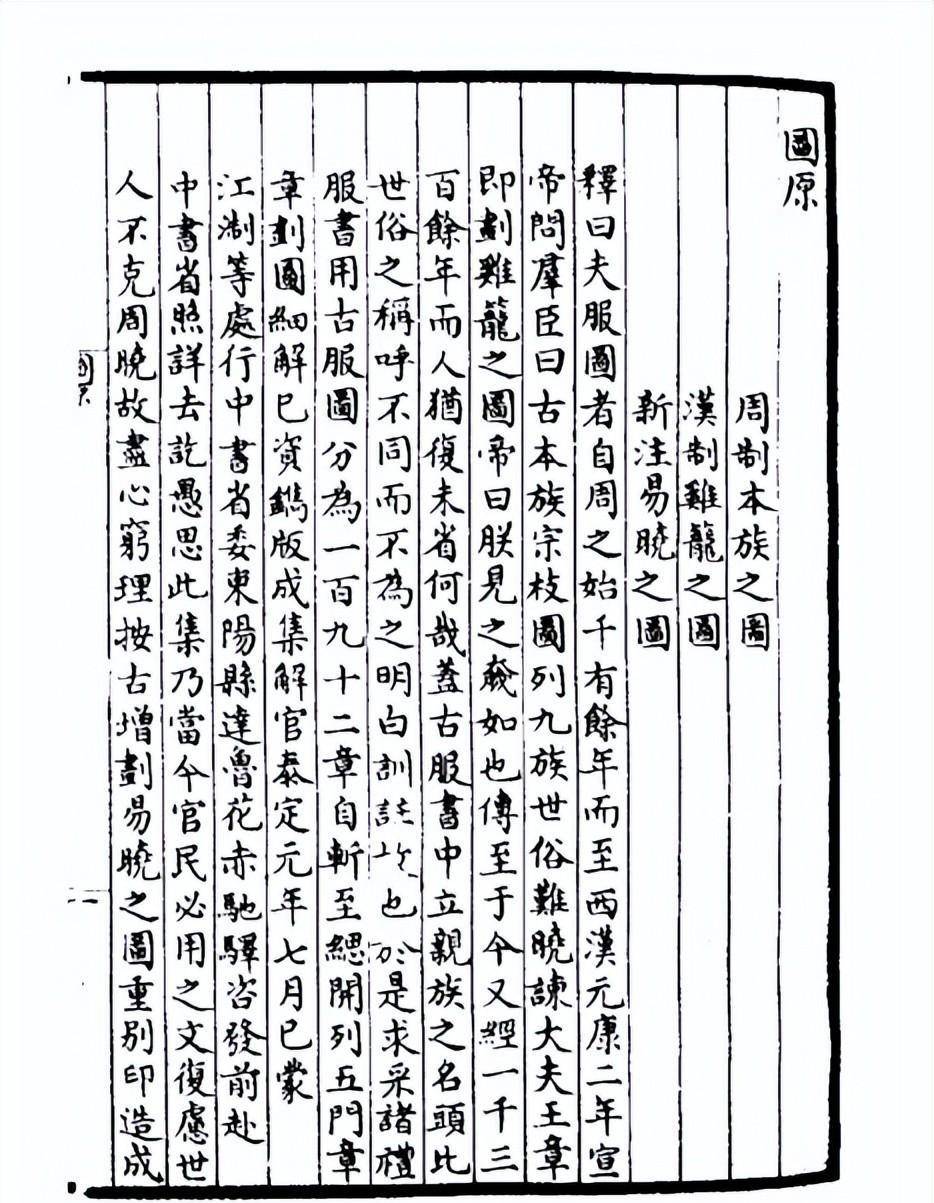 圖原
周制本族之圖
漢制雞籠之圖
新注易曉之圖
釋曰夫服圖者自周之始千有餘年而至西漢元康二年宣
帝問羣臣曰古本族宗枝圖列九族世俗難曉諫大夫王章
即劃雞籠之圖帝曰朕見之㡬如也傳至于今又經一千三
百餘年而人猶復未省何哉蓋古服書中立親族之名頭比
世俗之稱呼不同而不為之明白訓註故也於是求采諸禮
服書用古服圖分為一百九十二章自斬至緦開列五門章
章劃圖細解已資鐫版成集解官泰定元年七月已蒙
江淛等處行中書省委東陽縣達魯花赤馳驛咨發前赴
中書省照詳去訖愚思此集乃當今官民必用之文復慮世
人不克周曉故盡心窮理按古增劃易曉之圖重別印造成
圖原